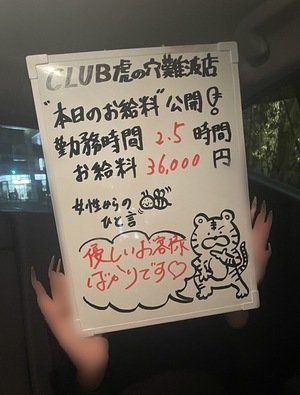 CLUB虎の穴難波店
"本日のお給料"公開!
勤務時間 2.5 時間
お給料 36,000 円
女性からの
ひと言
優しいお客様
ばかりです♡